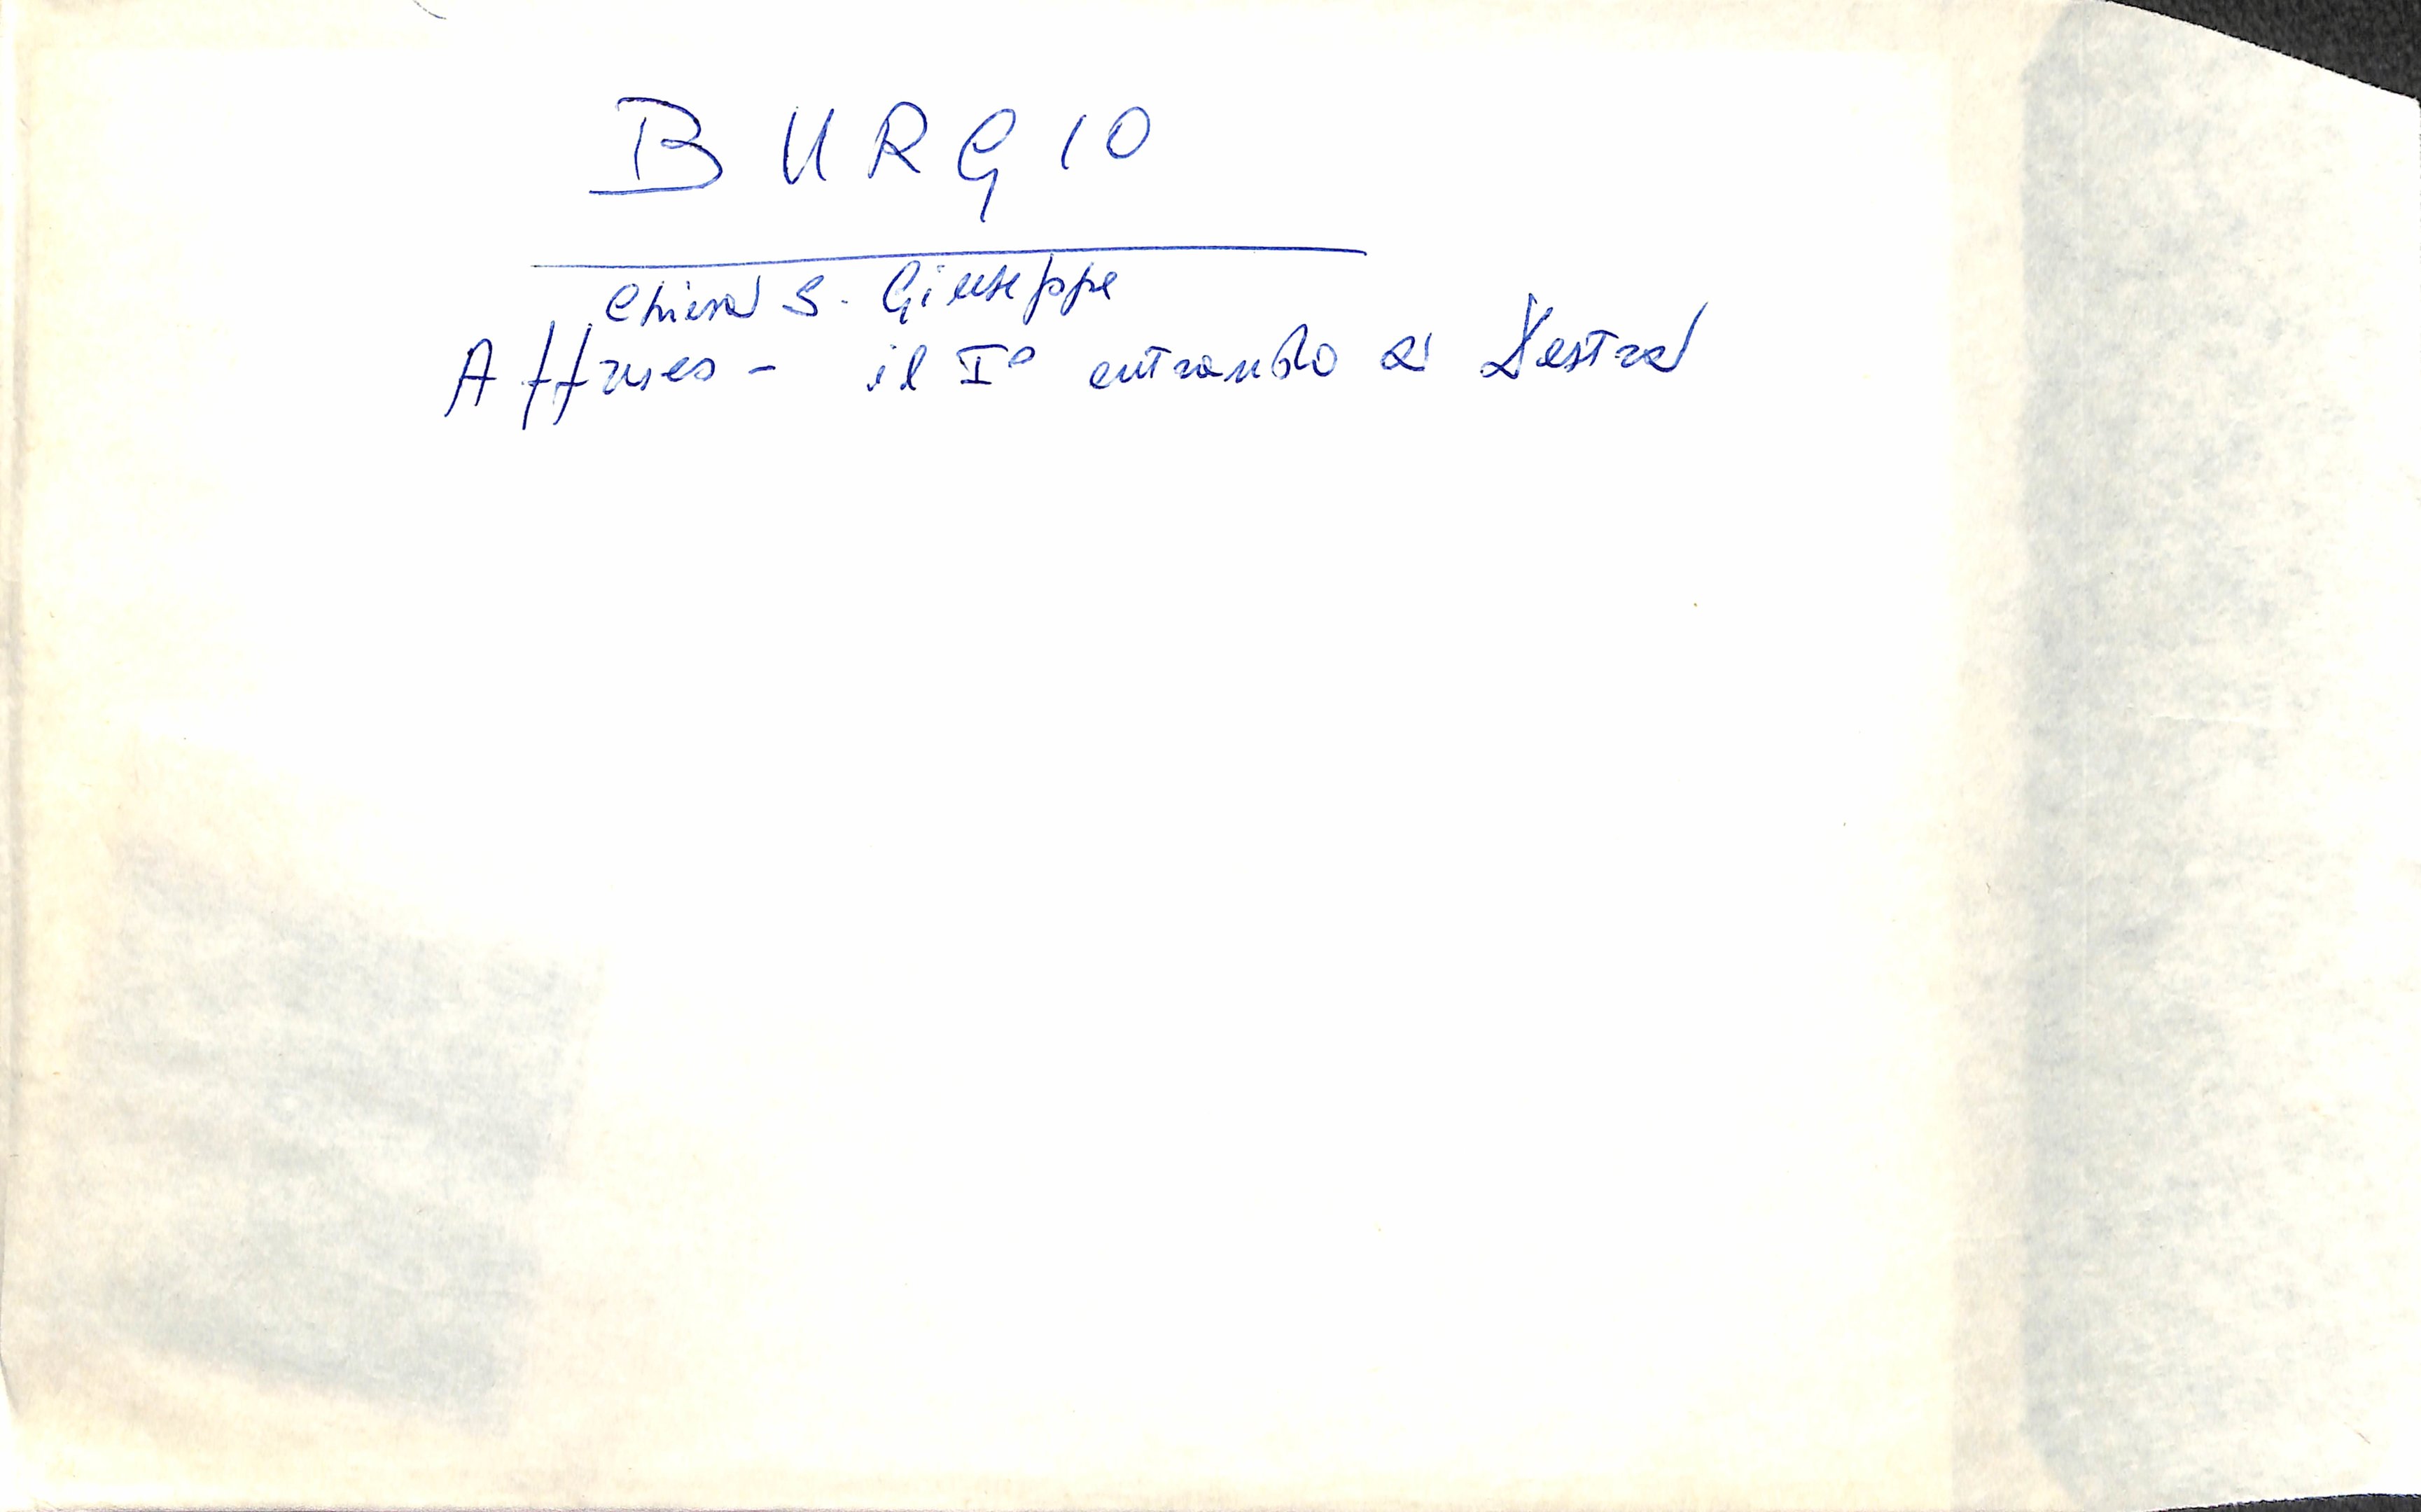 BURGIO
Chiesa S. Giuseppe
Affresco - il I° entrando a destra